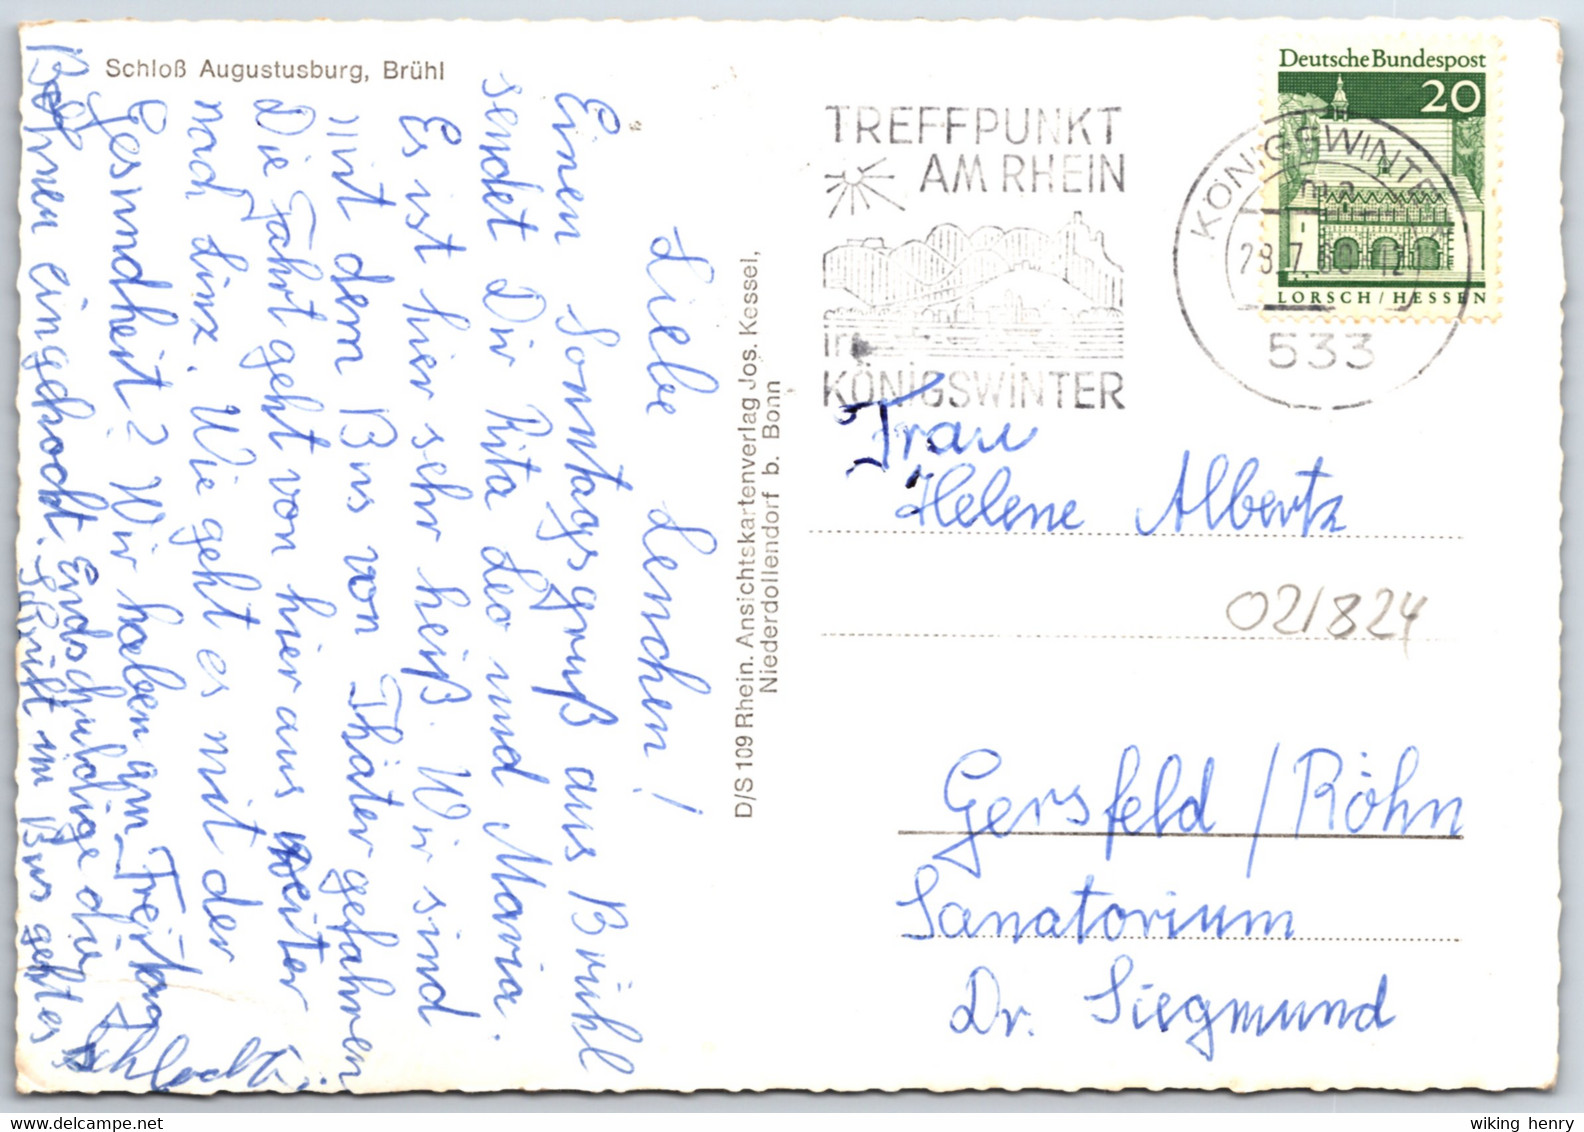 Schloß Augustusburg, Brühl
Liebe Lenchen!
Einen Sonntagsgruß aus Brühl
sendet Dir Rita Leo und Maria.
Es ist hier sehr heiß. Wir sind
mit dem Bus von Thäter gefahren
Die Fahrt geht von hier aus weiter
nach Linz. Wie geht es mit der
Gesundheit? Wir haben am Freitag
Bohnen eingekocht. Endschuldige die
Schrift im Bus geht es
schlecht.
D/S 109 Rhein. Ansichtskartenverlag Jos. Kessel,
Niederdollendorf b. Bonn
TREFFPUNKT
AM RHEIN
in
KÖNIGSWINTER
Deutsche Bundespost
20
LORSCH/HESSEN
KÖNIGSWINTER
ma
533
Frau
Helene Albertz
021824
Gersfeld/Röhn
Sanatorium
Dr. Siegmund
wiking henry